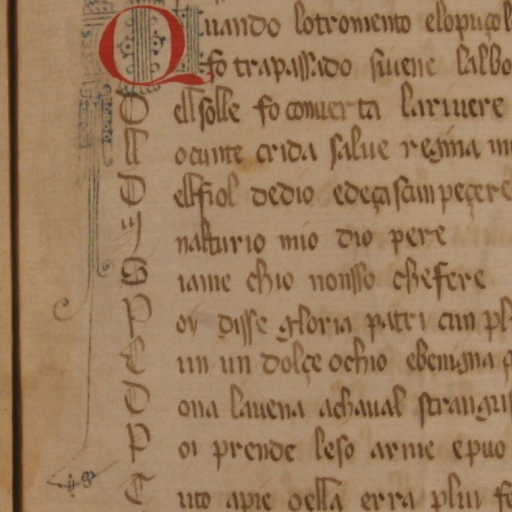 Quando lotromento elopuçol
fo trapassado siuene lalbo
D ellsolle fo conuerta lariuere
M ocunte crida salue regina
D ellfiol dedio edeçascun peçere
I nalturio mio dio pere
S iame chio nonsso chefere
P oy disse gloria patri cun
C un un dolçe ochio ebenigna
D ona lauena achaual strangu
P oi prende leso arme epuo
T uto apie oella erra plui